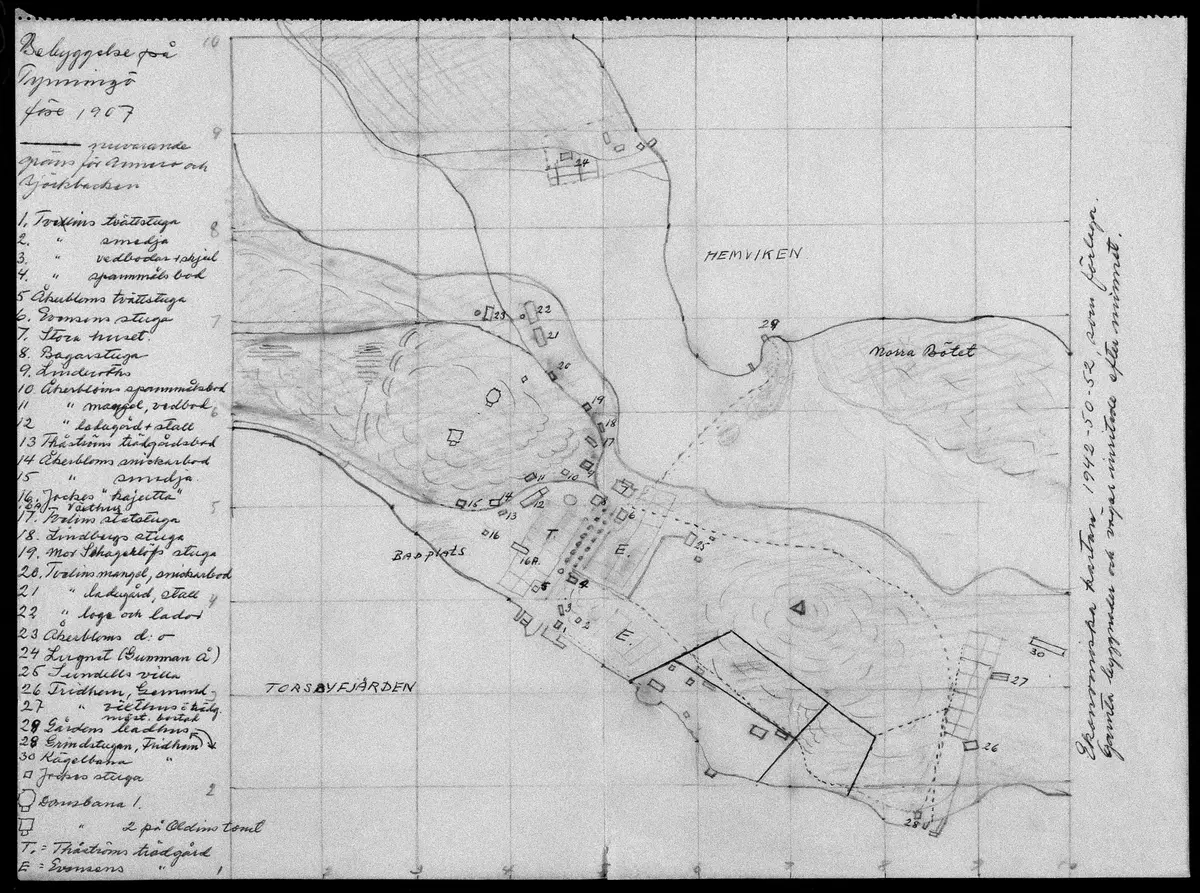 Bebyggelse på
Tynningö
före 1907
nuvarande
gräns för Annero och
Björkbacken
1. Tvedins tvättstuga
2. " smedja
3. " vedbodar + skjul
4. " spannmåls bod
5 Åkerbloms tvättstuga
6. Evonsens stuga
7. Stora huset.
8. Bagarstuga
9. Linderoths
10. Åkerbloms spannmålsbod
11 " mangel, vedbod
12 " ladugård + stall
13 Thåströms trädgårdsbod
14 Åkerbloms snickarbod
15 " smedja
16. Jockes "kajutta"
16A Växthus
17. Tvedins statstuga
18. Lindbergs stuga
19. Mor Skageklöfs stuga
20. Tvedins mangel, snickarbod
21 " ladugård, stall
22 " loge och lador
23 Åkerbloms d:o
24 Lugnet (Gumman Å)
25 Sundells villa
26 Fridhem,
27 " växthus o trädg.
mäst. bostad
28 Gårdens badhus
29 Grindstugan, Fridhem
30 Kägelbana "
Jockes stuga
Dansbana 1.
" 2 på Oldins tomt
T. = Thåströms trädgård
E = Evonsens "
10
9
8
7
6
5
4
2
HEMVIKEN
Norra Bötet
BADPLATS
TORSBYFJÄRDEN
T.
E.
E.
24
23
22
21
20
19
18
17
9
29
11
10
12
14
15
13
16
16A.
8
7
6
25
5
4
3
2
1
30
27
26
28
2
3
4
5
6
7
8
9
10
Ekonomiska kartan 1942-50-52, som förlaga.
Gamla byggnader och vägar inritade efter minnet.